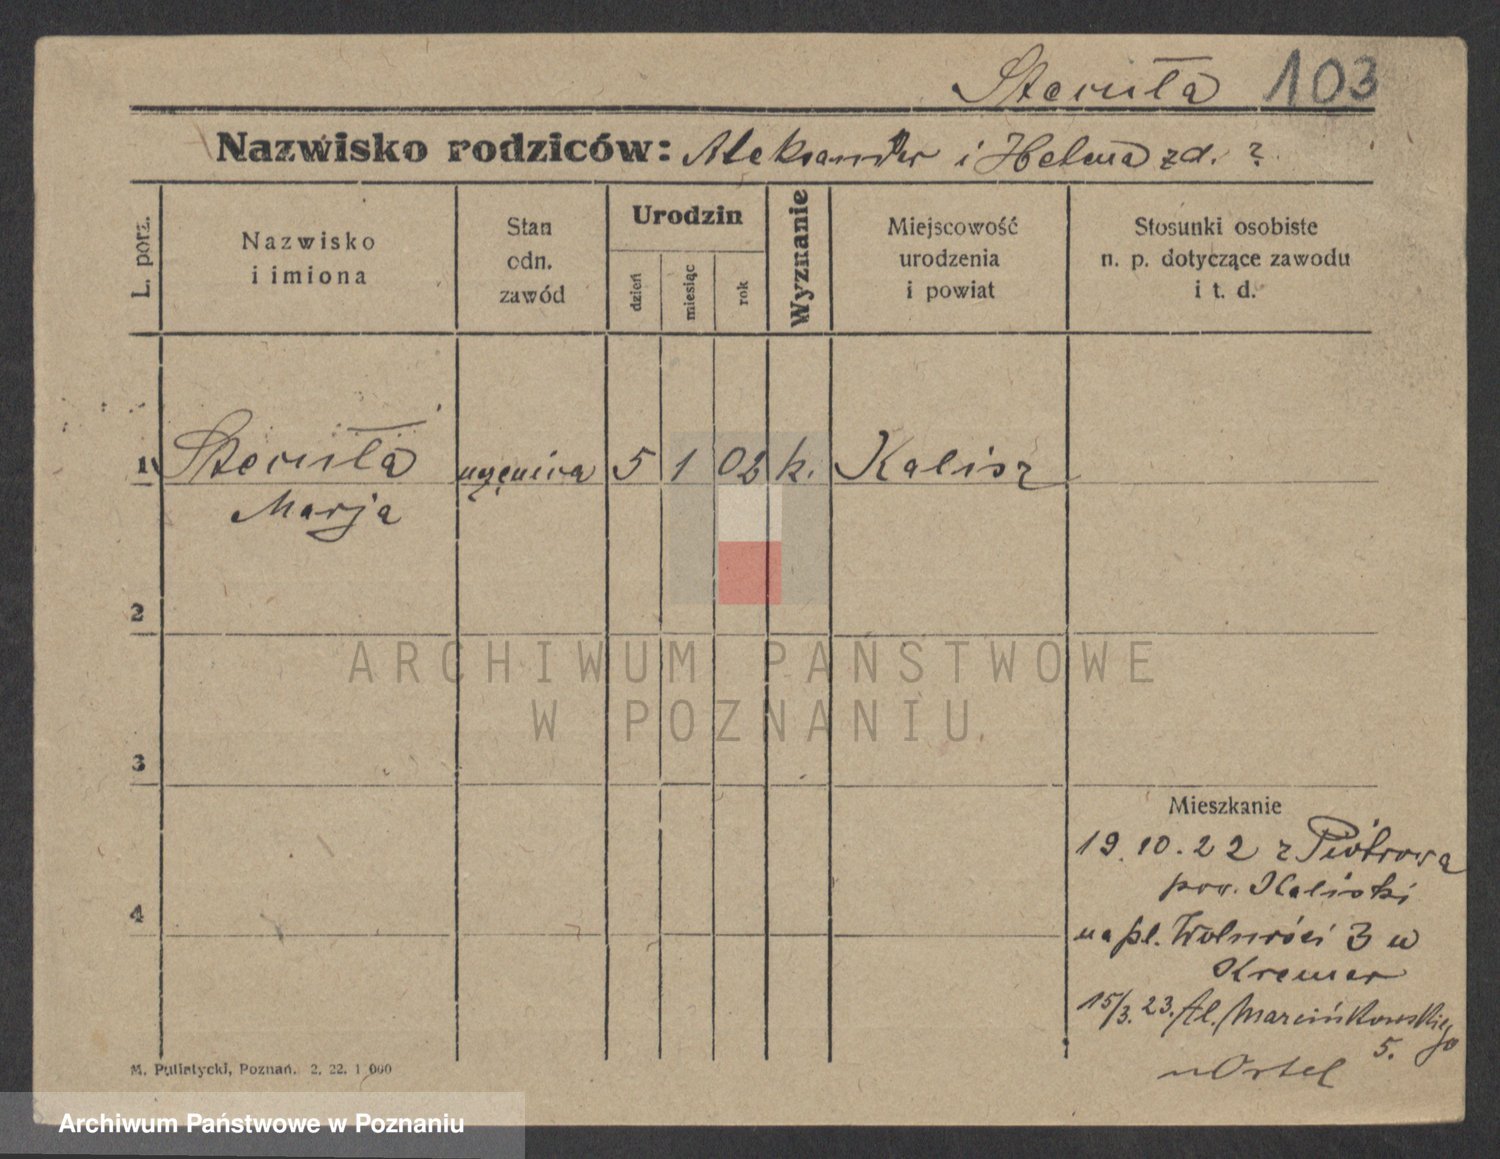 Stecuła 103
Nazwisko rodziców: Aleksander i Helena zd. ?
L. porz.
Nazwisko
i imiona
Stan
odn.
zawód
Urodzin
dzień
miesiąc
rok
Wyznanie
Miejscowość
urodzenia
i powiat
Stosunki osobiste
n. p. dotyczące zawodu
i t. d.
1 Stecuła uczenica 5 1 02 k. Kalisz
Marja
2
3
4
Mieszkanie
19.10.22 z Piotrowa
pow. Kaliski
na pl. Wolności 3 u
Kremer
15/3.23. Al. Marcinkowskiego
5.
u Ortel
M. Putiatycki, Poznań. 2. 22. 1 000
ARCHIWUM PAŃSTWOWE
W POZNANIU
Archiwum Państwowe w Poznaniu